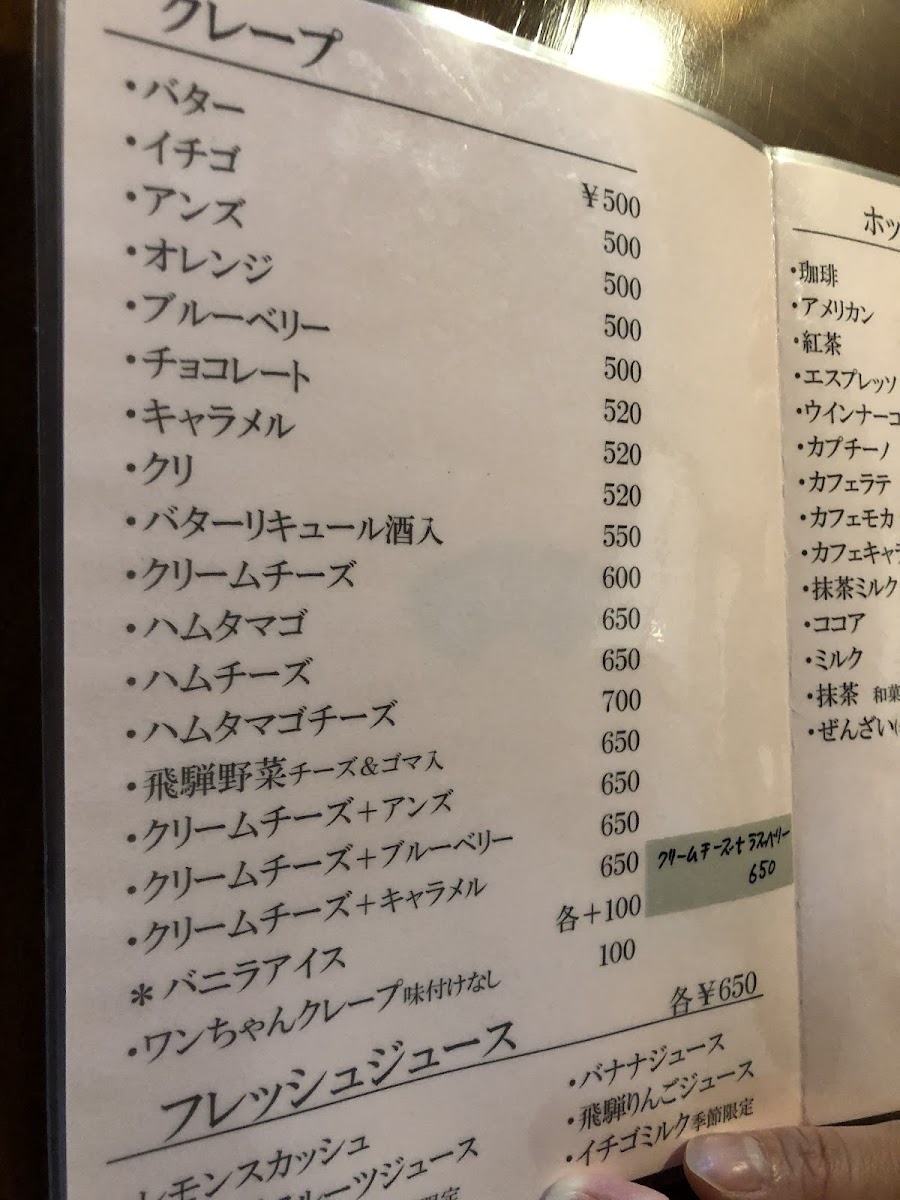 クレープ
・バター ¥500
・イチゴ 500
・アンズ 500
・オレンジ 500
・ブルーベリー 500
・チョコレート 520
・キャラメル 520
・クリ 520
・バターリキュール酒入 550
・クリームチーズ 600
・ハムタマゴ 650
・ハムチーズ 650
・ハムタマゴチーズ 700
・飛騨野菜チーズ&ゴマ入 650
・クリームチーズ+アンズ 650
・クリームチーズ+ブルーベリー 650
・クリームチーズ+キャラメル 650
クリームチーズ+ラズベリー
650
*バニラアイス 各+100
・ワンちゃんクレープ味付けなし 100
フレッシュジュース 各¥650
レモンスカッシュ
ルーツジュース
限定
・バナナジュース
・飛騨りんごジュース
・イチゴミルク季節限定
ホッ
・珈琲
・アメリカン
・紅茶
・エスプレッソ
・ウインナーコ
・カプチーノ
・カフェラテ
・カフェモカ
・カフェキャラ
・抹茶ミルク
・ココア
・ミルク
・抹茶 和菓
・ぜんざい(